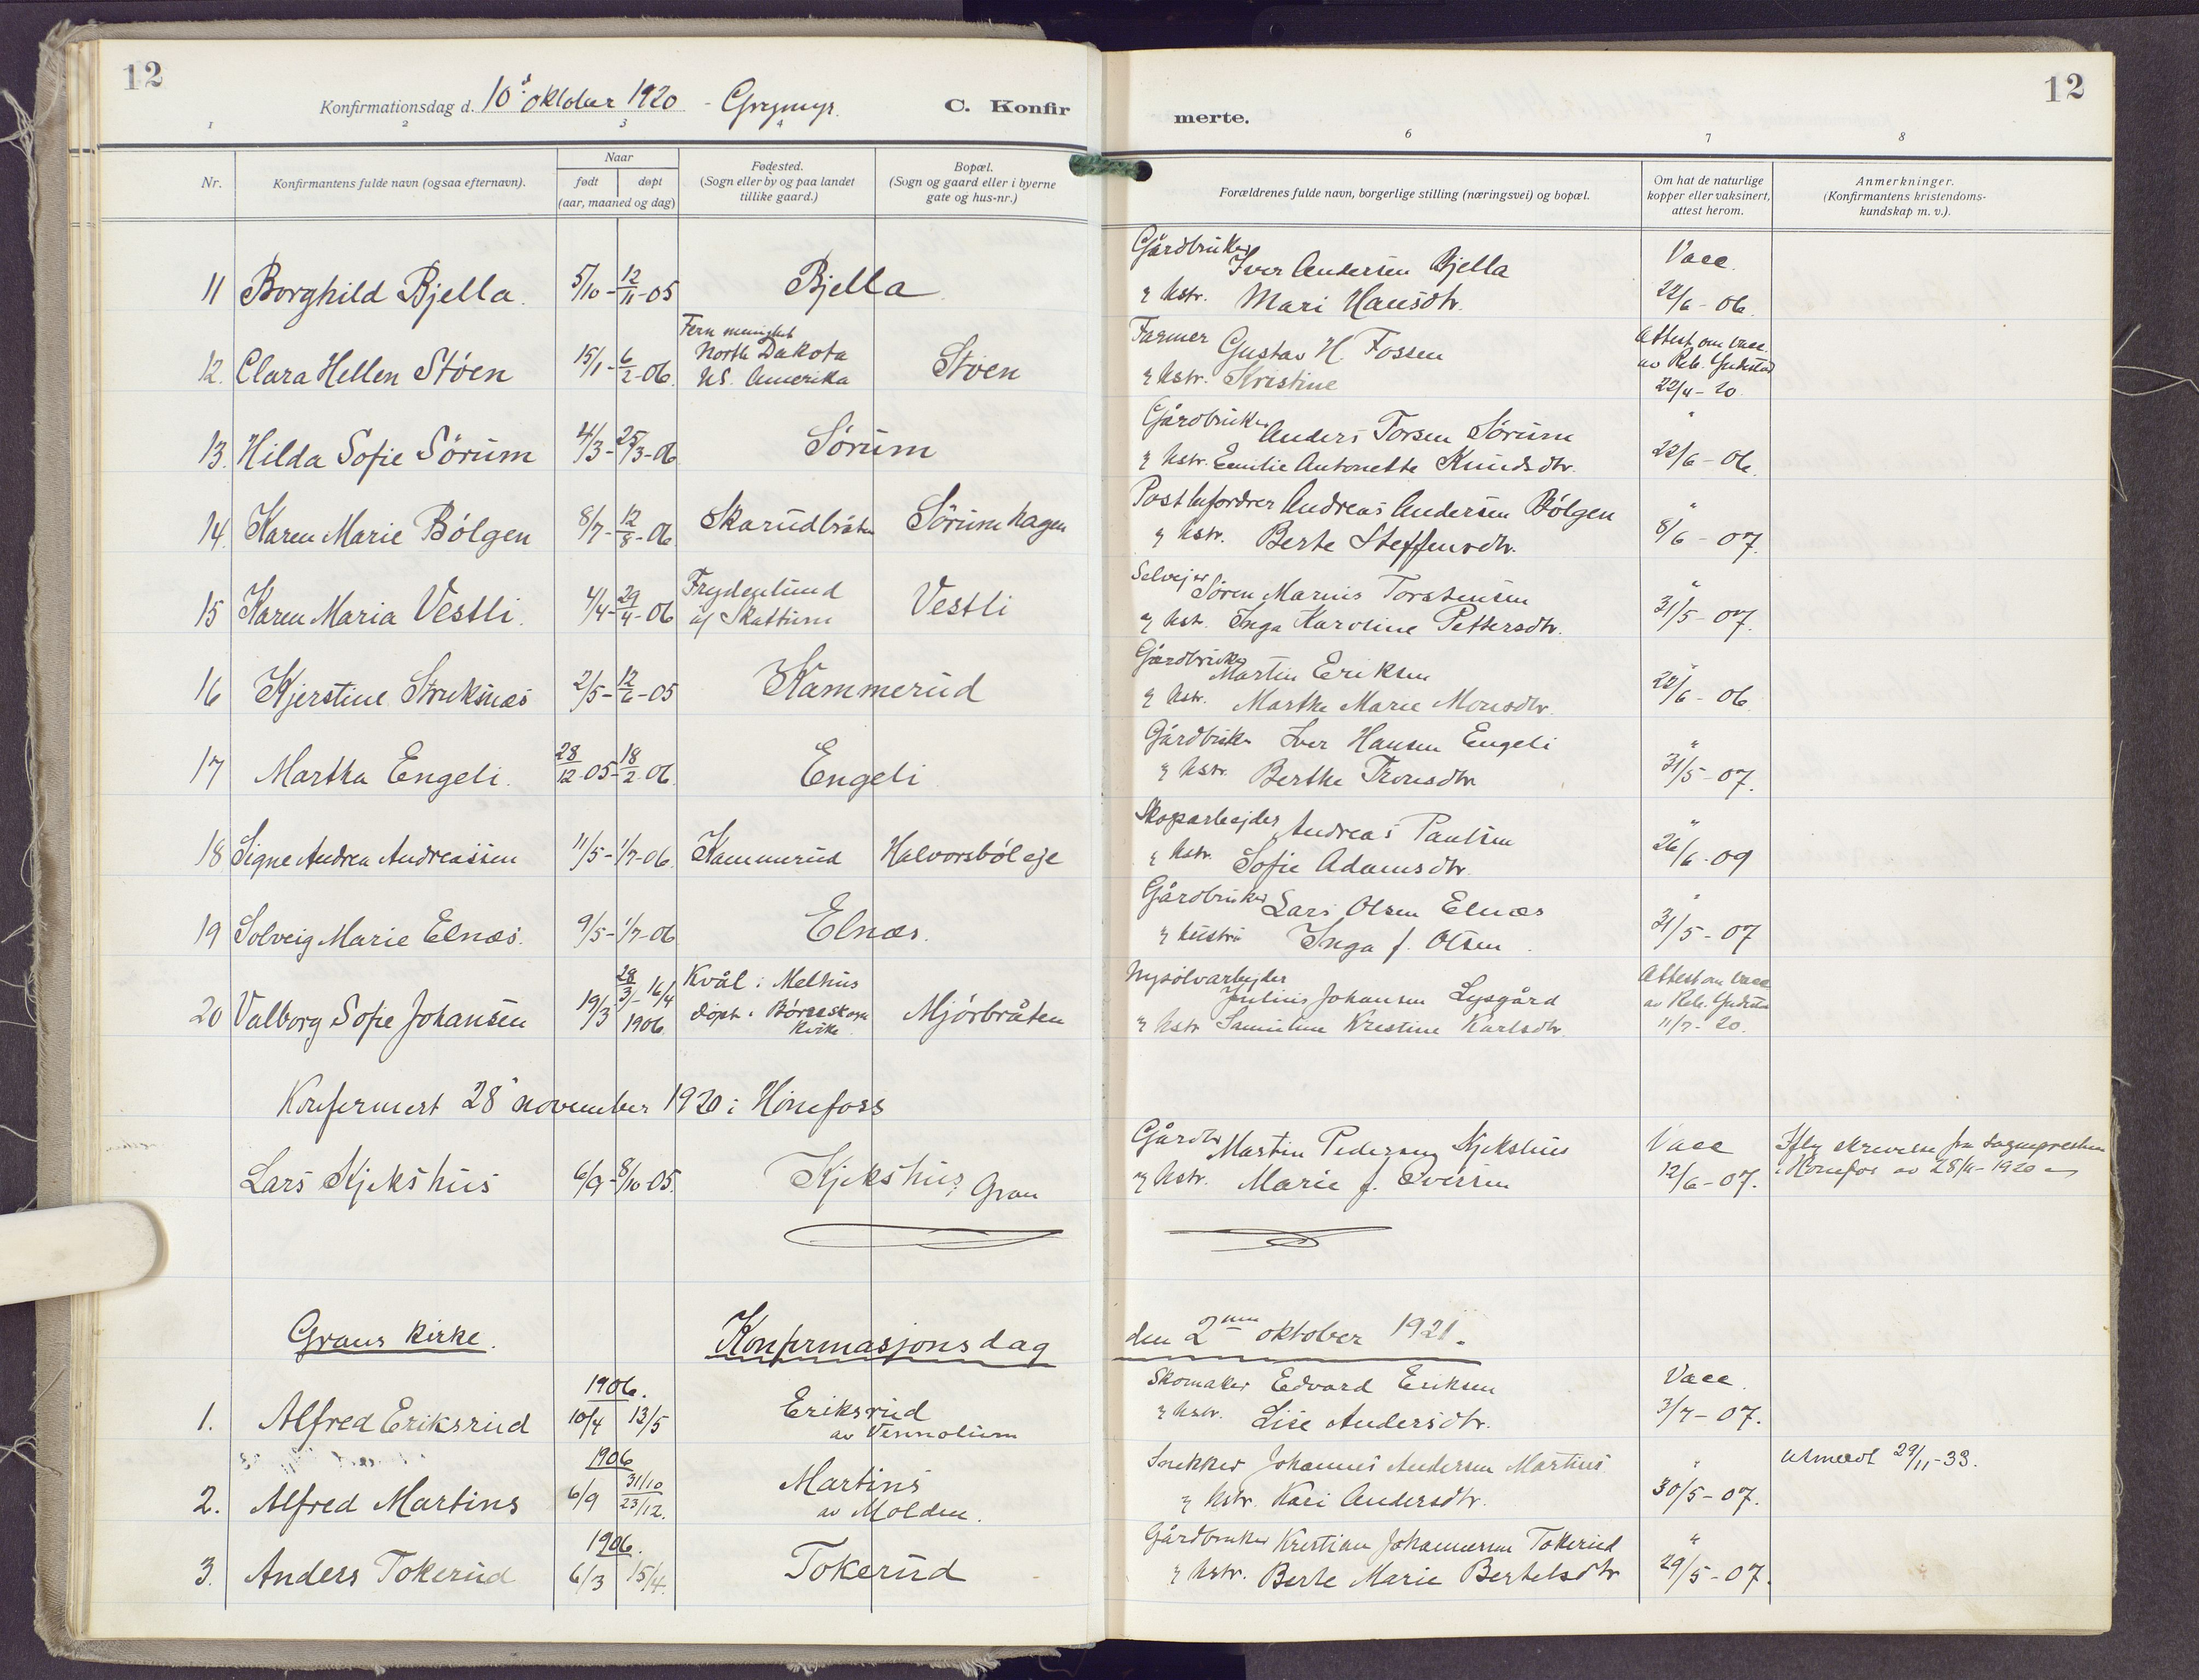 12
Konfirmationsdag d. 10' oktober 1920 - Grymyr.
C. Konfir
1 2 3 4
Nr.
Konfirmantens fulde navn (ogsaa efternavn).
Naar
født døpt
(aar, maaned og dag)
Fødested.
(Sogn eller by og paa landet
tillike gaard.)
Bopæl.
(Sogn og gaard eller i byerne
gate og hus-nr.)
11 Borghild Bjella. 5/10 - 12/11 - 05 Bjella
North Dakota
12. Clara Hellen Støen 15/1 - 6/2 - 06. N.S. Amerika Støen
13. Hilda Sofie Sørum 4/3 - 25/3 - 06 Sørum
14. Karen Marie Bølgen 8/7 - 12/8 - 06 Skarudbråten Sørumhagen
Frydenlund
15 Karen Maria Vestli. 4/4 - 29/4 - 06 af Skattum Vestli
16 Kjerstine Struksnæs 2/5 - 12/6 - 05 Kammerud
17 Martha Engeli. 28/12 - 05 - 18/2 - 06. Engeli
18 Signe Andrea Andreassen 11/5 - 1/7 - 06. Kammerud Halvorsbøl eje
19 Solveig Marie Elnæs. 9/5 - 1/7 - 06 Elnæs.
28/3 - 16/4 Kvål i Melhus
20 Valborg Sofie Johansen 19/3 1906. døpt i Børseskogn Kirke Mjørbråten
Konfermert 28' november 1920 i Hønefoss
Lars Kjekshus 6/9 - 8/10 - 05. Kjekshus, Gran
Grans kirke. Konfirmasjonsdag
1906.
1. Alfred Eriksrud 10/4 13/5 Eriksrud
av Vennolum
1906
2. Alfred Martins 6/9 31/10 23/12. Martins
av Molden.
1906.
3. Anders Tokerud 6/3 15/4. Tokerud
12
merte.
6 7 8
Forældrenes fulde navn, borgerlige stilling (næringsvei) og bopæl.
Om hat de naturlige
kopper eller vaksinert,
attest herom.
Anmerkninger.
(Konfirmantens kristendoms-
kundskap m. v.).
Gårdbruker Iver Andersen Bjella Vacc.
& hstr. Mari Hansdtr. 22/6 - 06.
Farmer Gustav H. Fossen Attest om vacc.
& hstr. Kristine 22/4 - 20.
Gårdbruker Anders Torsen Sørum "
& hstr. Emilie Antonette Knudsdtr. 22/6 - 06.
Postbefordrer Andreas Andersen Bølgen "
& hstr. Berte Steffensdtr. 8/6 - 07.
Selvejer Søren Marius Torstensen "
& hst. Inga Karoline Pettersdtr. 31/5 - 07.
Gårdbruker Martin Eriksen "
& hstr. Marthe Marie Monsdtr. 22/6 - 06.
Gårdbruker Iver Hansen Engeli "
& hstr. Berthe Tronsdtr 31/5 - 07.
Skogarbejder Andreas Paulsen "
& hstr. Sofie Adamsdtr. 26/6 - 09
Gårdbruker Lars Olsen Elnæs "
& hustru Inga f. Olsen. 31/5 - 07
Nysølvarbejder Attest om vacc
Julius Johansen Lysgård
& hstr Kristine Karlsdtr. 11/7 - 20.
Gårdbr Martin Pedersen Kjekshus Vacc Iflg skrivelse fra sognepresten
& hstr. Marie f. Iversen 12/6 - 07. i Hønefos av 28/11 - 1920
den 2nen oktober 1921.
Skomaker Edvard Eriksen Vacc.
& hstr. Lise Andersdtr. 3/7 - 07.
Snekker Johannes Andersen Martins " utmeldt 29/11 - 33.
& hstr. Kari Andersdtr. 30/5 - 07.
Gårdbruker Kristian Johannesen Tokerud "
& hstr. Berte Marie Bertelsdtr 29/5 - 07.